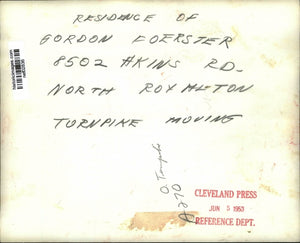 RESIDENCE OF
GORDON FOERSTER
8502 AKINS RD.
NORTH ROYALTON
TURNPIKE MOVING
O. Turnpike
CLEVELAND PRESS
JUN 5 1953
REFERENCE DEPT.